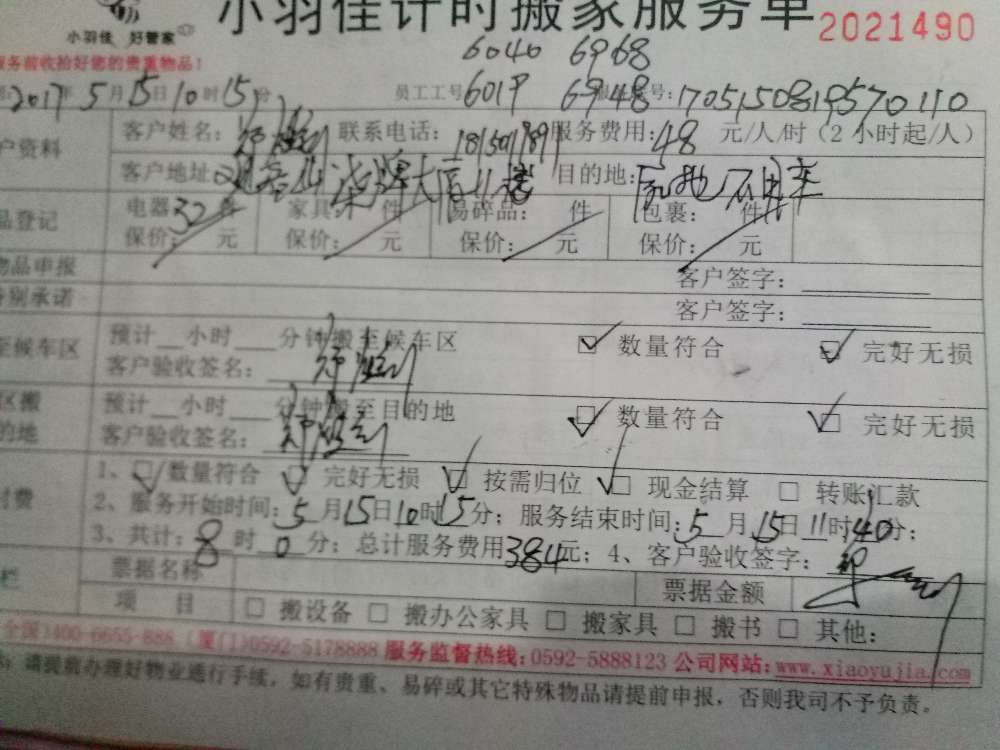 小羽佳计时搬家服务单 2021490
小羽佳 好管家
务前收拾好您的贵重物品!
6040 6968
2017年5月15日10时15分 员工工号 6019 6948 号:1705150819570110
户资料 客户姓名: 联系电话: 服务费用:48 元/人/时(2小时起/人)
客户地址 目的地: 原地 不用车
品登记 电器 32 件 家具: 件 易碎品: 件 包裹: 件
保价: 元 保价: 元 保价: 元 保价: 元
物品申报 客户签字:
特别承诺 客户签字:
至候车区 预计 小时 分钟搬至候车区 数量符合 完好无损
客户验收签名:
区搬 预计 小时 分钟搬至目的地 数量符合 完好无损
的地 客户验收签名:
付费 1、 数量符合 完好无损 按需归位 现金结算 转账汇款
2、服务开始时间:5月15日10时15分;服务结束时间:5月15日11时40分;
3、共计:8时0分;总计服务费用384元;4、客户验收签字:
栏 票据名称 票据金额
项 目 搬设备 搬办公家具 搬家具 搬书 其他:
全国)400-6655-888 (厦门)0592-5178888 服务监督热线:0592-5888123 公司网站:www.xiaoyujia.com
:请提前办理好物业进行手续,如有贵重、易碎或其它特殊物品请提前申报,否则我司不予负责。